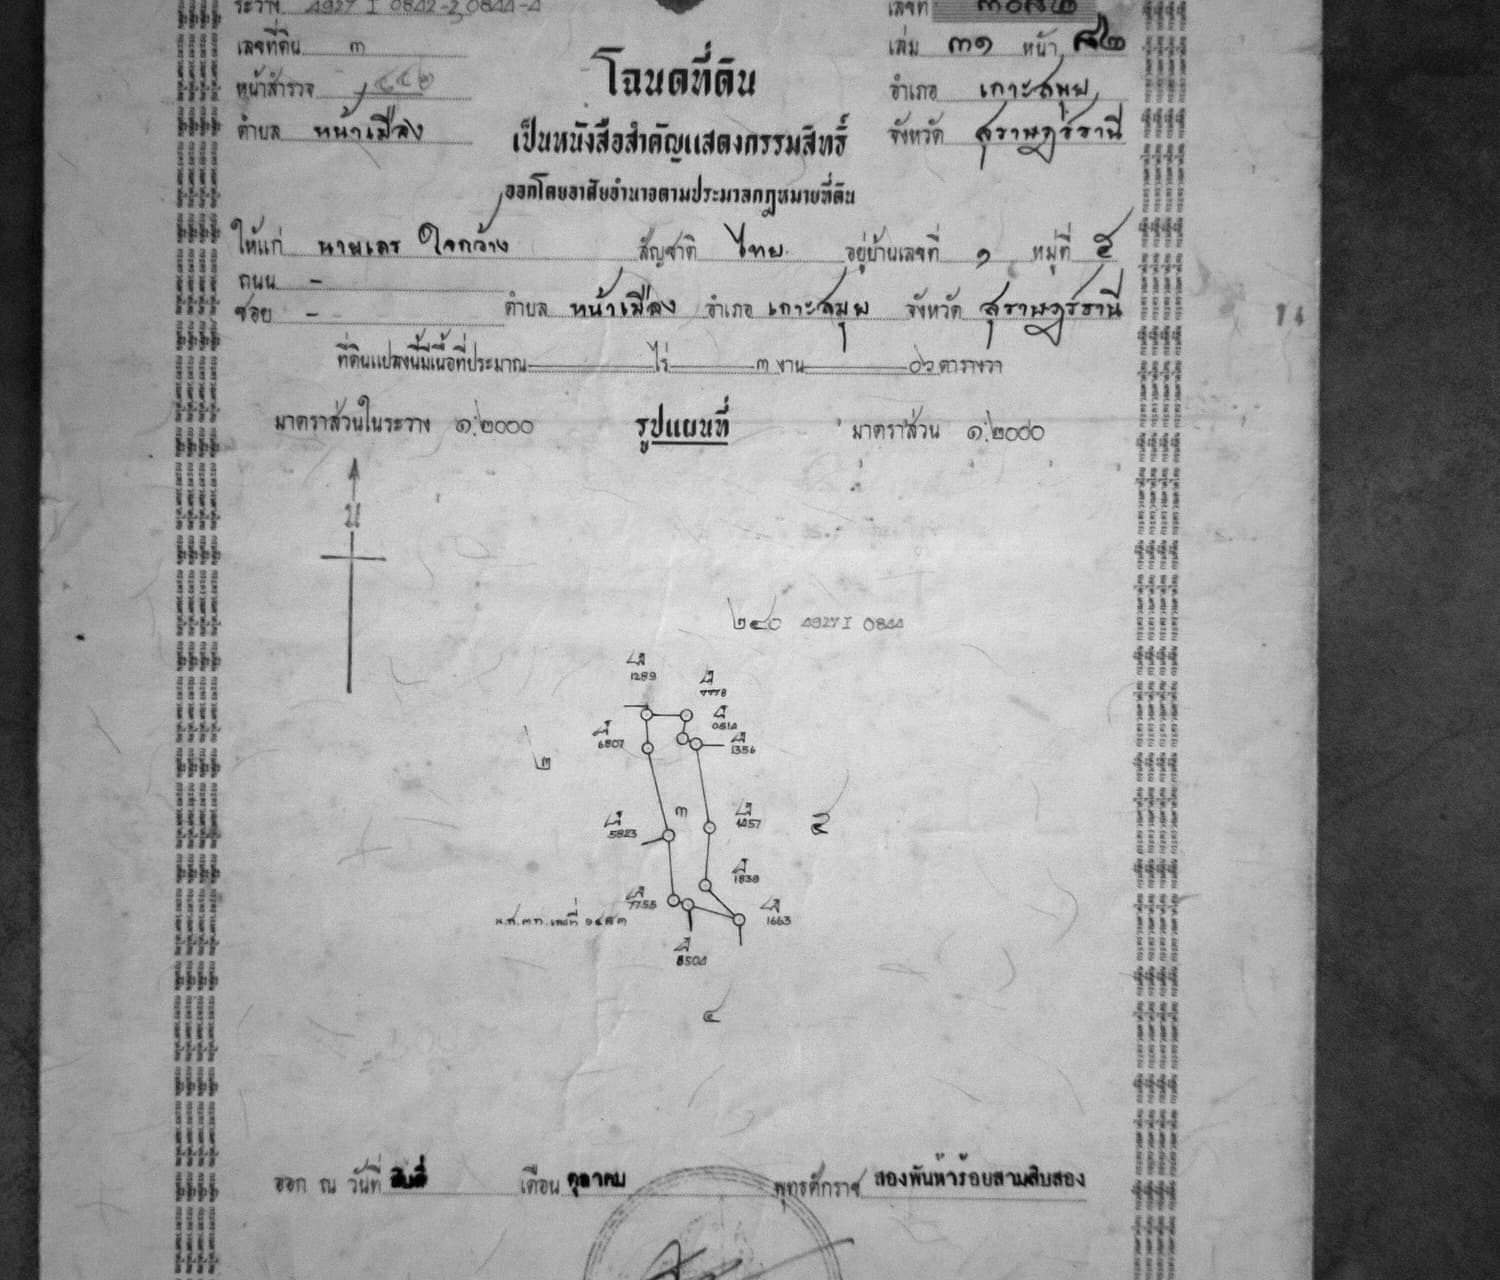 ระวาง 4927 I 0842-2,0844-4
เลขที่ ๓๐๘๒
เลขที่ดิน ๓
เล่ม ๓๑ หน้า ๘๒
โฉนดที่ดิน
หน้าสำรวจ
อำเภอ เกาะสมุย
ตำบล หน้าเมือง
เป็นหนังสือสำคัญแสดงกรรมสิทธิ์
จังหวัด สุราษฎร์ธานี
ออกโดยอาศัยอำนาจตามประมวลกฎหมายที่ดิน
ให้แก่ นายเคร ใจกว้าง สัญชาติ ไทย อยู่บ้านเลขที่ ๑ หมู่ที่ ๕
ถนน -
ซอย - ตำบล หน้าเมือง อำเภอ เกาะสมุย จังหวัด สุราษฎร์ธานี
ที่ดินแปลงนี้มีเนื้อที่ประมาณ ไร่ ๓ งาน ๐๖ ตารางวา
มาตราส่วนในระวาง ๑:๒๐๐๐ รูปแผนที่ มาตราส่วน ๑:๒๐๐๐
น
๒๔๐ 4927 I 0844
1289
7778
0814
6807
1356
๒
๓
5823
1457
๕
1838
7755
น.ส.๓ก.เลขที่ ๑๔๘๓
1663
8504
๔
ออก ณ วันที่ สิบสี่ เดือน ตุลาคม พุทธศักราช สองพันห้าร้อยสามสิบสอง